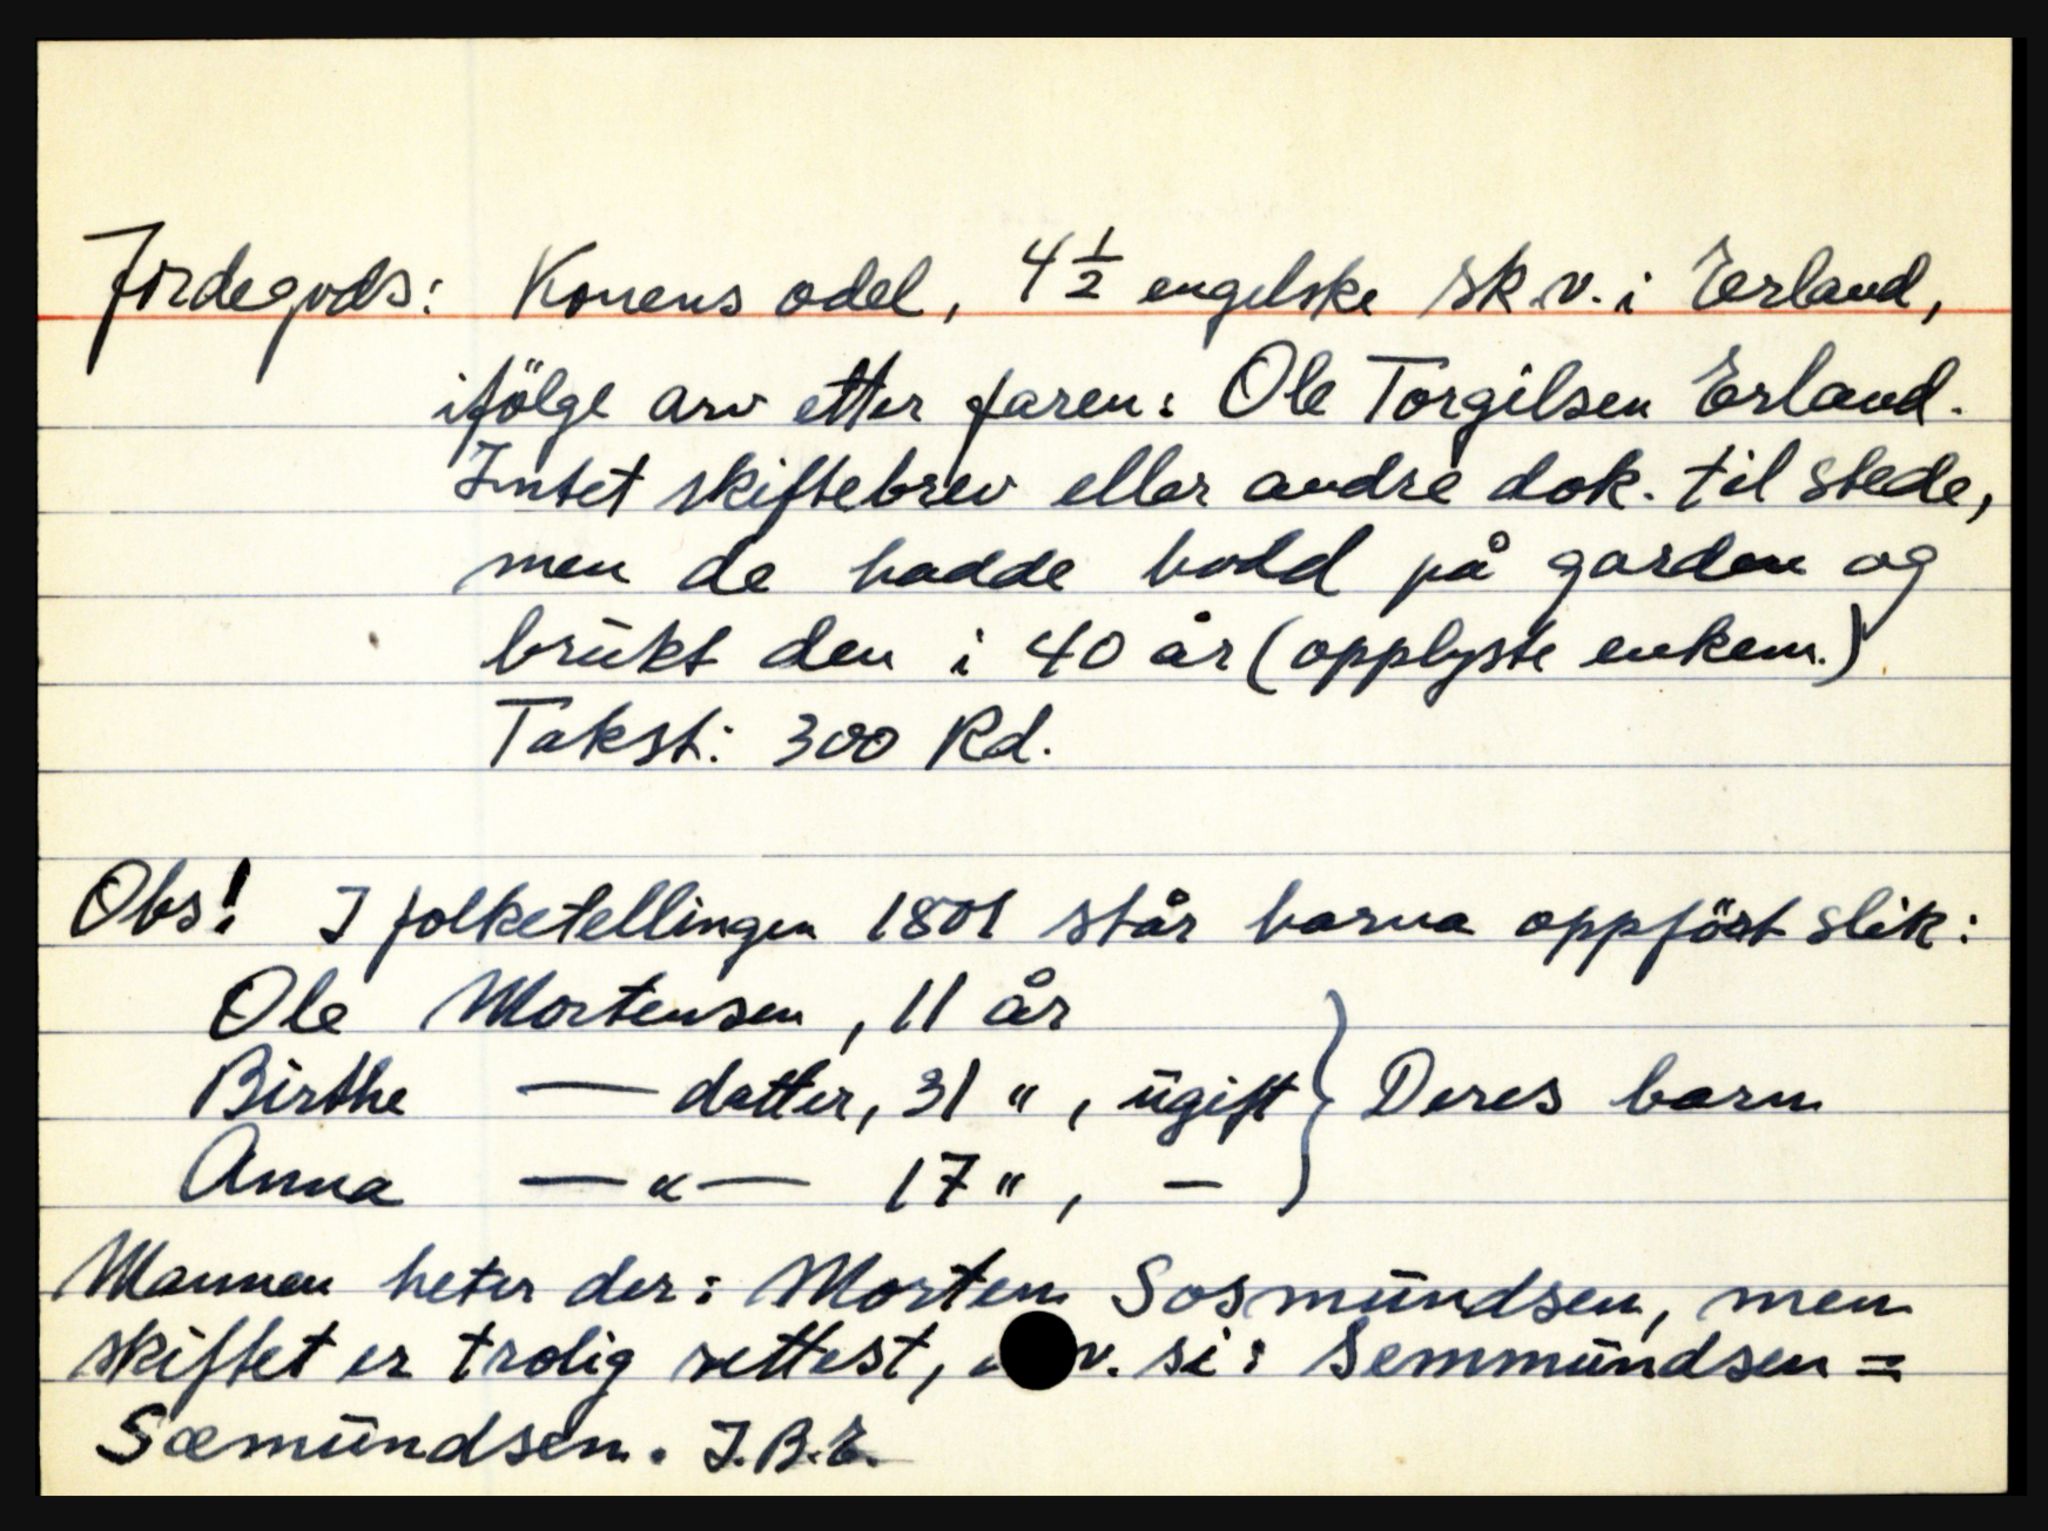 Jordegods: Konens odel, 4 1/2 engelske sk.v. i Erland,
ifölge arv etter faren: Ole Torgilsen Erland.
Intet skiftebrev eller andre dok. til stede,
men de hadde bodd på garden og
brukt den i 40 år (opplyste enken.)
Takst: 300 Rd.
Obs! I folketellingen 1801 står barna oppfört slik:
Ole Mortensen, 11 år
Birthe — datter, 31 " , ugift } Deres barn
Anna — " — 17 " , —
Mannen heter der: Morten Sosmundsen, men
skiftet er trolig rettest, v. si: Semmundsen =
Sæmundsen. J.B.E.